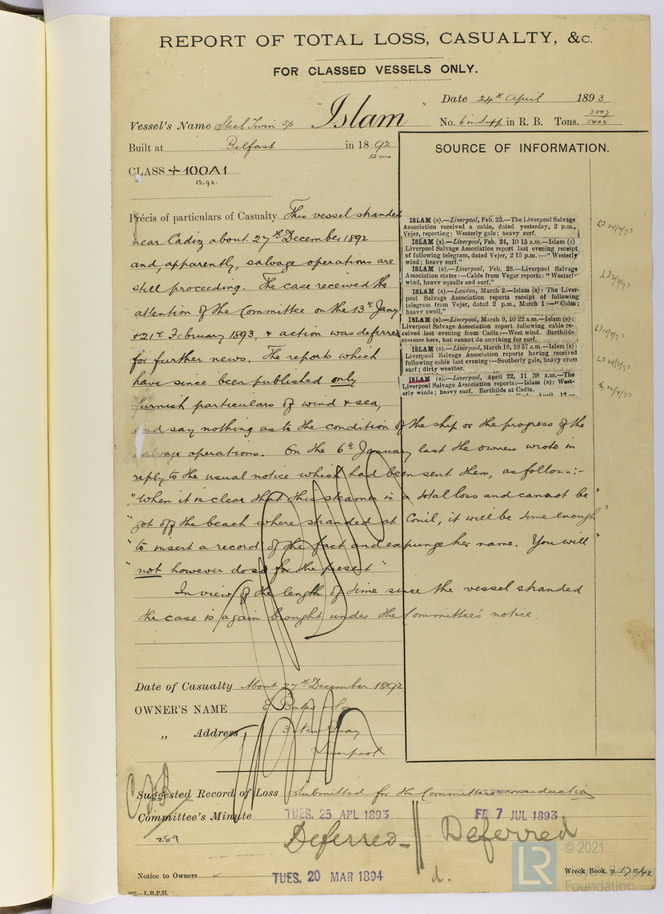 REPORT OF TOTAL LOSS, CASUALTY, &c.
FOR CLASSED VESSELS ONLY.
Date 24th April 1893
Vessel's Name Steel Twin "Islam" No. in R. B. Tons.
Built at Belfast in 1892
CLASS +100A1
12.92.
SOURCE OF INFORMATION.
ISLAM (s).—Liverpool, Feb. 23.—The Liverpool Salvage
Association received a cable, dated yesterday, 2 p.m.,
Vejer, reporting: Westerly gale; heavy surf.
ISLAM (s).—Liverpool, Feb. 24, 10 15 a.m.—Islam (s)
Liverpool Salvage Association report last evening receipt
of following telegram, dated Vejer, 2 15 p.m.:—"Westerly
wind; heavy surf."
ISLAM (s).—Liverpool, Feb. 28.—Liverpool Salvage
Association states:—Cable from Vegar reports: "Westerly
wind, heavy squalls and surf."
ISLAM (s).—London, March 2.—Islam (s): The Liver-
pool Salvage Association reports receipt of following
telegram from Vejer, dated 2 p.m., March 1:—"Calm;
heavy swell."
ISLAM (s).—Liverpool, March 9, 10 22 a.m.—Islam (s):
Liverpool Salvage Association report, following cable re-
ceived last evening from Cadiz:—West wind. Berthilde
steamer here, but cannot do anything for surf.
ISLAM (s).—Liverpool, March 18, 10 57 a.m.—Islam (s):
Liverpool Salvage Association reports having received
following cable last evening:—Southerly gale, heavy cross
surf; dirty weather.
ISLAM (s).—Liverpool, April 22, 11 38 a.m.—The
Liverpool Salvage Association reports:—Islam (s): West-
erly winds; heavy surf. Berthilde at Cadiz.
Précis of particulars of Casualty This vessel stranded
near Cadiz about 27th December 1892
and, apparently, salvage operations are
still proceeding. The case received the
attention of the Committee on the 13th Jany
& 21st February 1893, & action was deferred
for further news. The reports which
have since been published only
furnish particulars of wind & sea,
and say nothing as to the condition of the ship or the progress of the
salvage operations. On the 6th January last the owners wrote in
reply to the usual notice which had been sent them, as follows:-
"When it is clear that this steamer is a total loss and cannot be"
"got off the beach where stranded at Conil, it will be time enough"
"to insert a record of the fact and expunge her name. You will"
"not however do so for the present"
In view of the length of time since the vessel stranded
the case is again brought under the Committee's notice.
Date of Casualty About 27th December 1892
OWNER'S NAME
„ Address
Liverpool
Suggested Record of Loss Submitted for the Committee's consideration
Committee's Minute TUES. 25 APL 1893 FR 7 JUL 1893
289
Deferred Deferred
Notice to Owners TUES. 20 MAR 1894 d. Wreck Book, p.
LR © 2021
Foundation